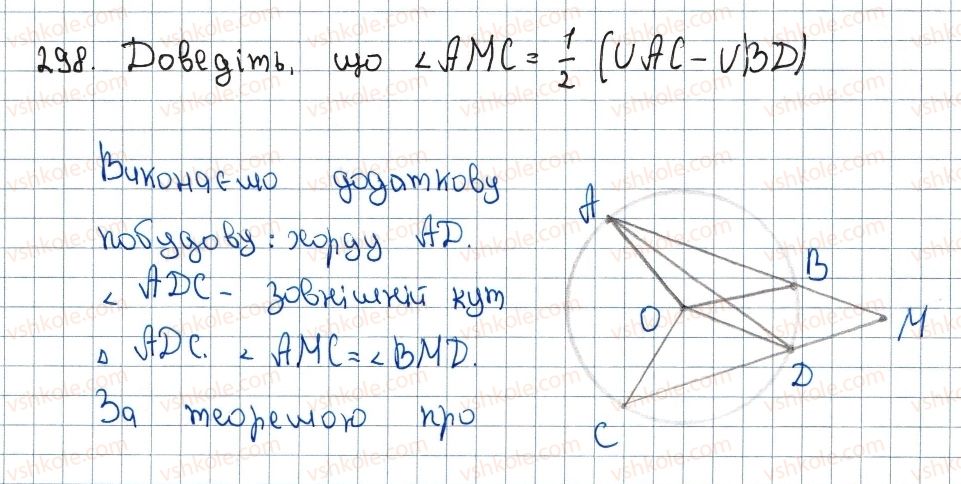 298. Доведіть, що ∠AMC = 1/2 (∪AC - ∪BD)
Виконаємо додаткову
побудову: хорду AD.
∠ ADC - зовнішній кут
△ ADC. ∠ AMC = ∠BMD.
За теоремою про
A
B
O
M
D
C
vshkole.com